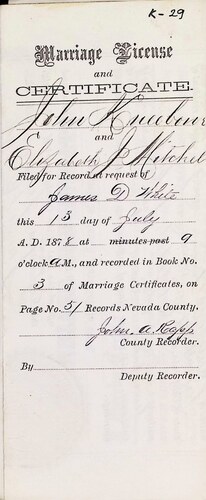 K-29
Marriage License
and
CERTIFICATE.
John
and
Elizabeth J Mitchel
Filed for Record at request of
James D White
this 13 day of July
A. D. 1878 at minutes past 9
o'clock A M., and recorded in Book No.
3 of Marriage Certificates, on
Page No. 51 Records Nevada County.
John A Rapp
County Recorder.
By
Deputy Recorder.